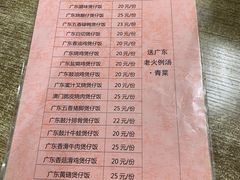 广东腊味煲仔饭 20元/份
广东烧腩仔煲仔饭 25元/份
广东五香碌鸭煲仔饭 23元/份
广东白切鸡煲仔饭 20元/份
广东香油鸡煲仔饭 20元/份
广东烧鸡煲仔饭 20元/份
广东盐焗鸡煲仔饭 20元/份
广东豉油鸡煲仔饭 20元/份
广东蜜汁叉烧煲仔饭 20元/份
澳门脆皮烧肉煲仔饭 20元/份
广东五香猪脚煲仔饭 25元/份
广东豉汁排骨煲仔饭 22元/份
广东豉汁牛蛙煲仔饭 20元/份
广东香滑牛肉煲仔饭 25元/份
广东香菇滑鸡煲仔饭 20元/份
广东黄鳝煲仔饭 25元/份
送广东
老火例汤
·青菜